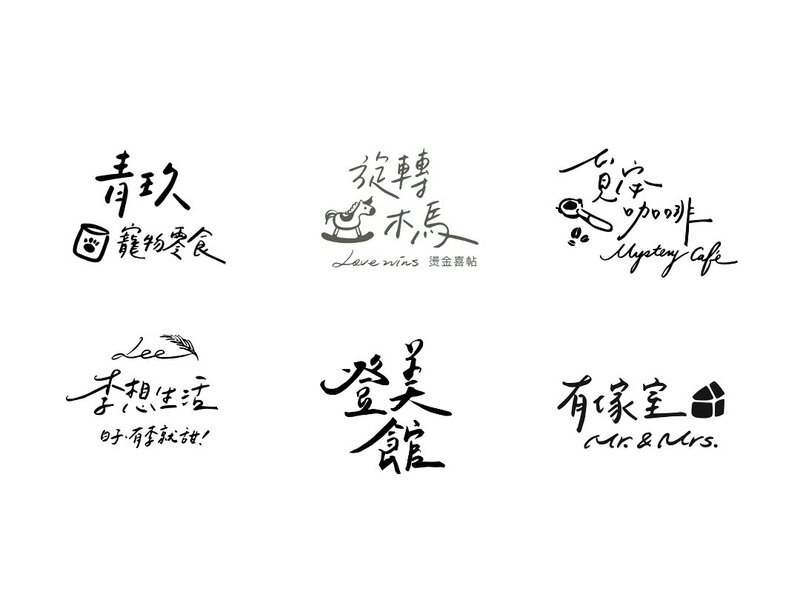 青玖
寵物零食
旋轉
木馬
Love wins 燙金喜帖
覓安
咖啡
Mystery Café
Lee
李想生活
日子·有李就甜!
登美
館
有塚室
Mr. & Mrs.